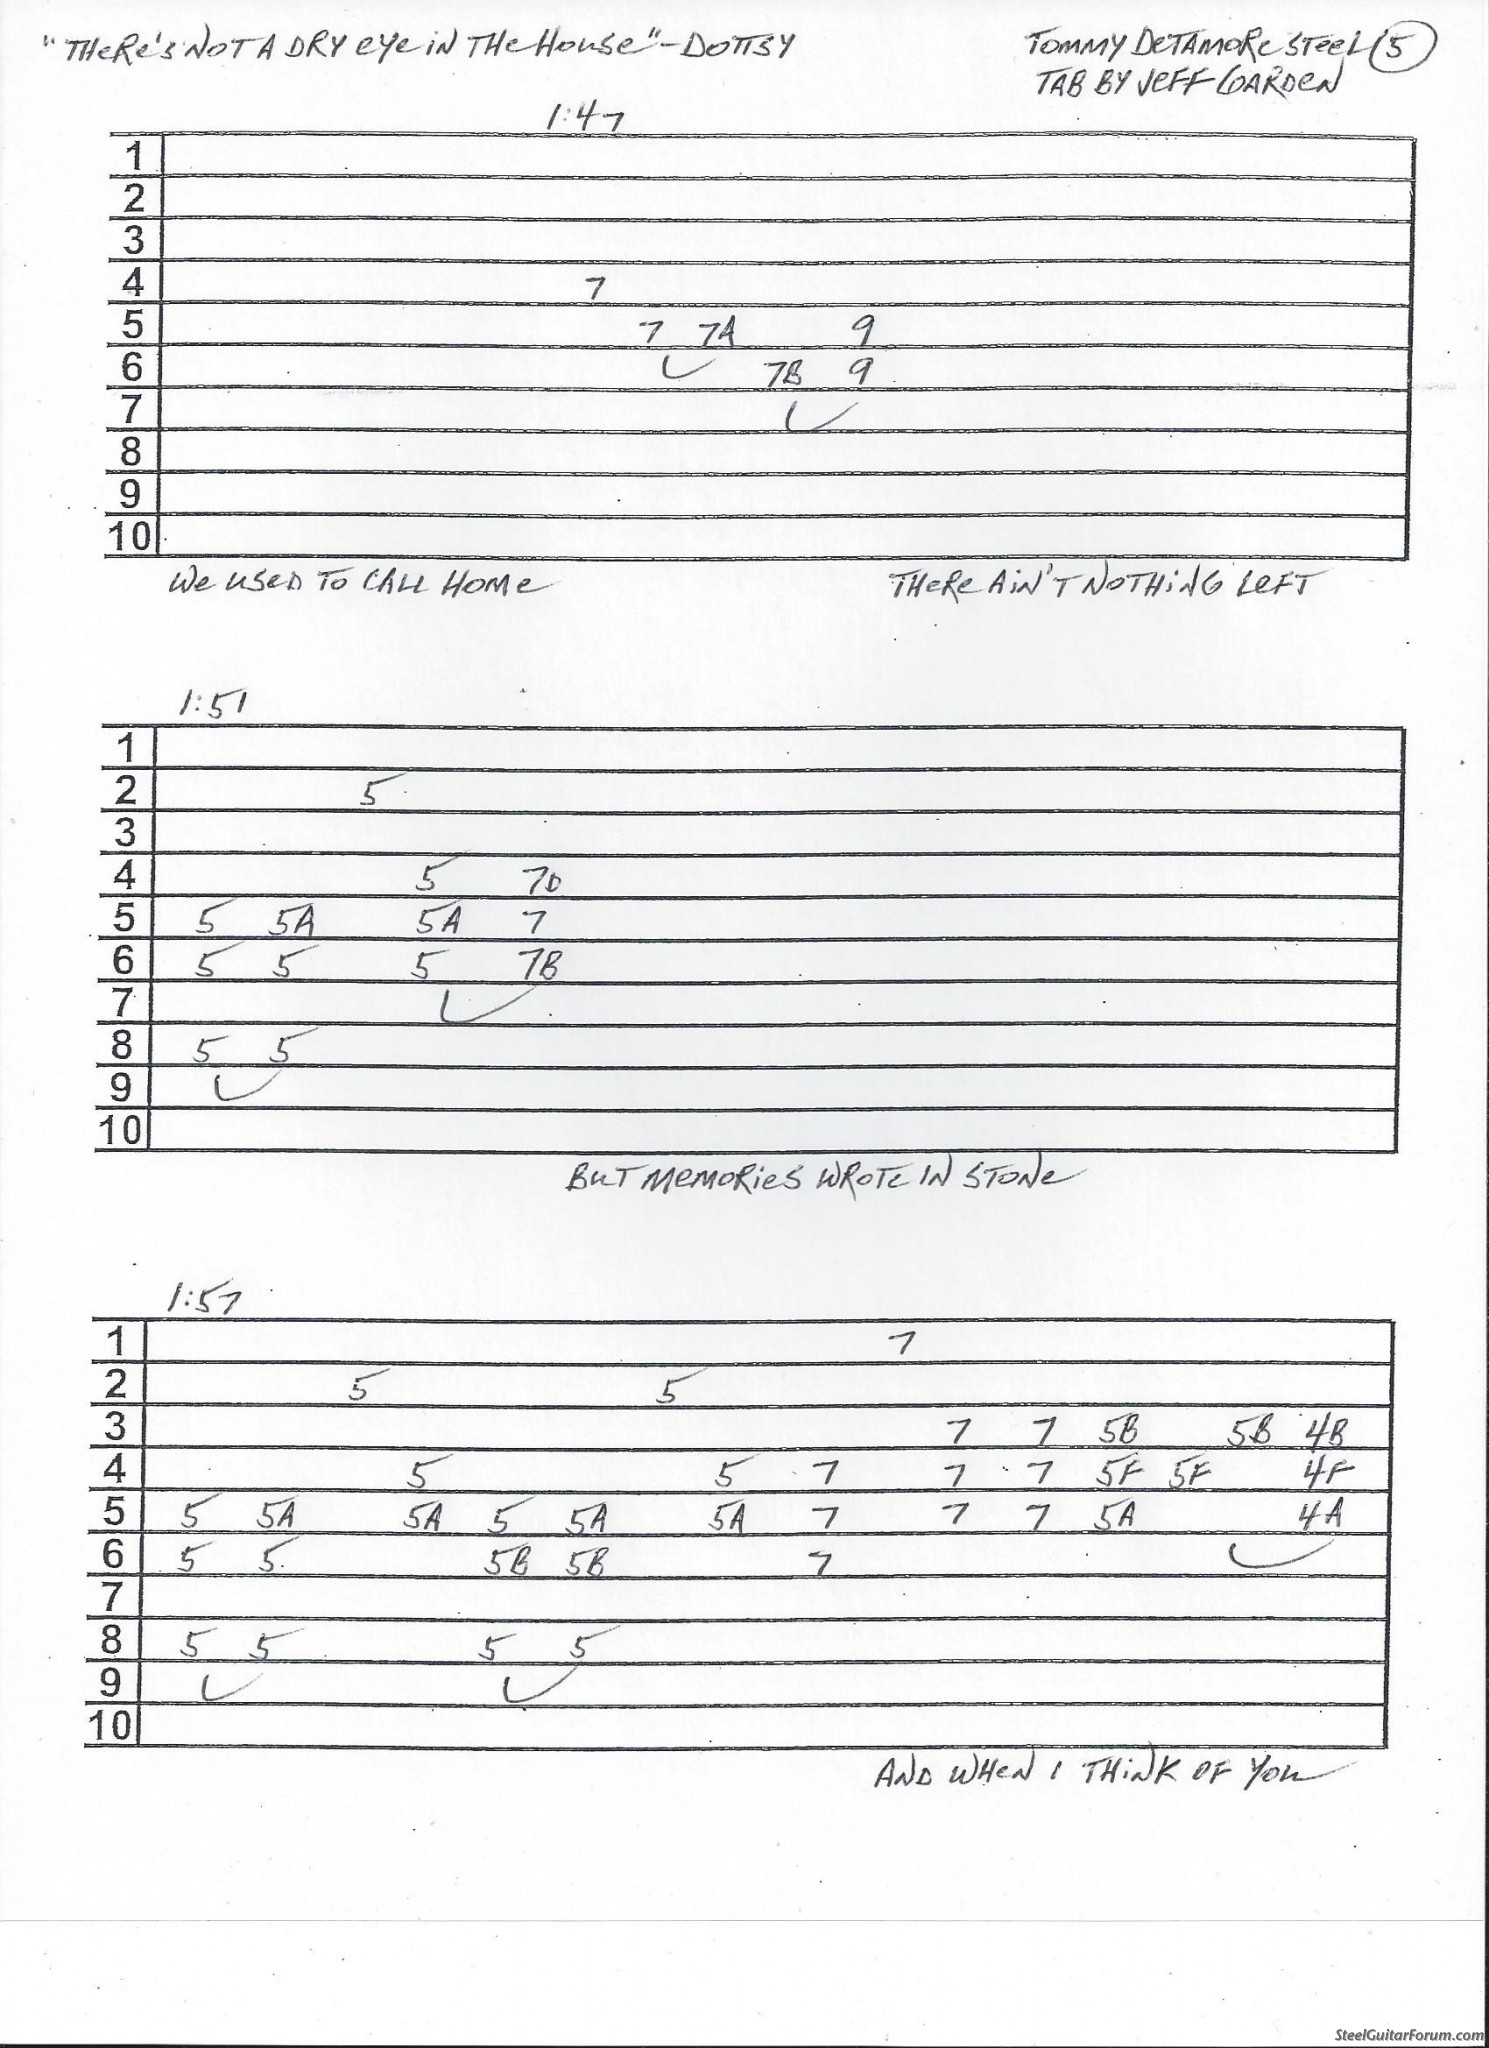 "There's Not A Dry Eye in The House" - Dottsy
Tommy Detamore Steel 5
Tab by Jeff Garden
1:47
1
2
3
4 7
5 7 7A 9
6 7B 9
7
8
9
10
We used to call home There ain't nothing left
1:51
1
2 5
3
4 5 7D
5 5 5A 5A 7
6 5 5 5 7B
7
8 5 5
9
10
But memories wrote in stone
1:57
1 7
2 5 5
3 7 7 5B 5B 4B
4 5 5 7 7 7 5F 5F 4F
5 5 5A 5A 5 5A 5A 7 7 7 5A 4A
6 5 5 5B 5B 7
7
8 5 5 5 5
9
10
And when I think of you
SteelGuitarForum.com